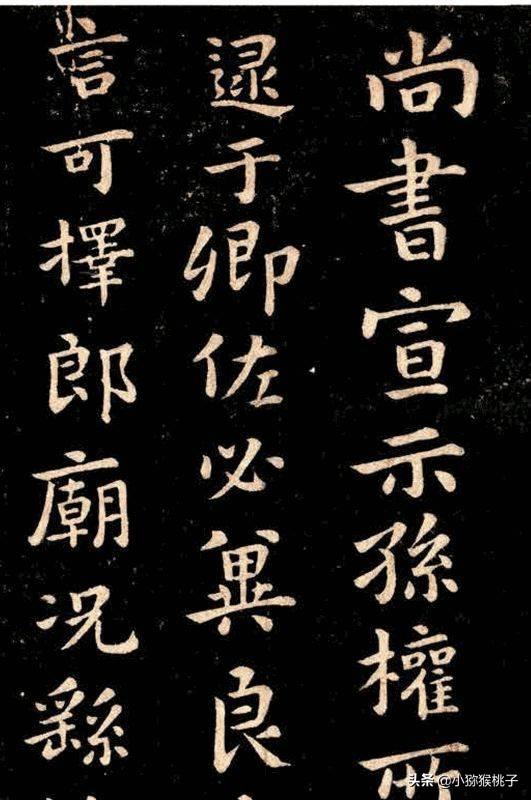 尚書宣示孫權
逮于卿佐必冀良
言可擇郎廟況繇
头条 @小猕猴桃子